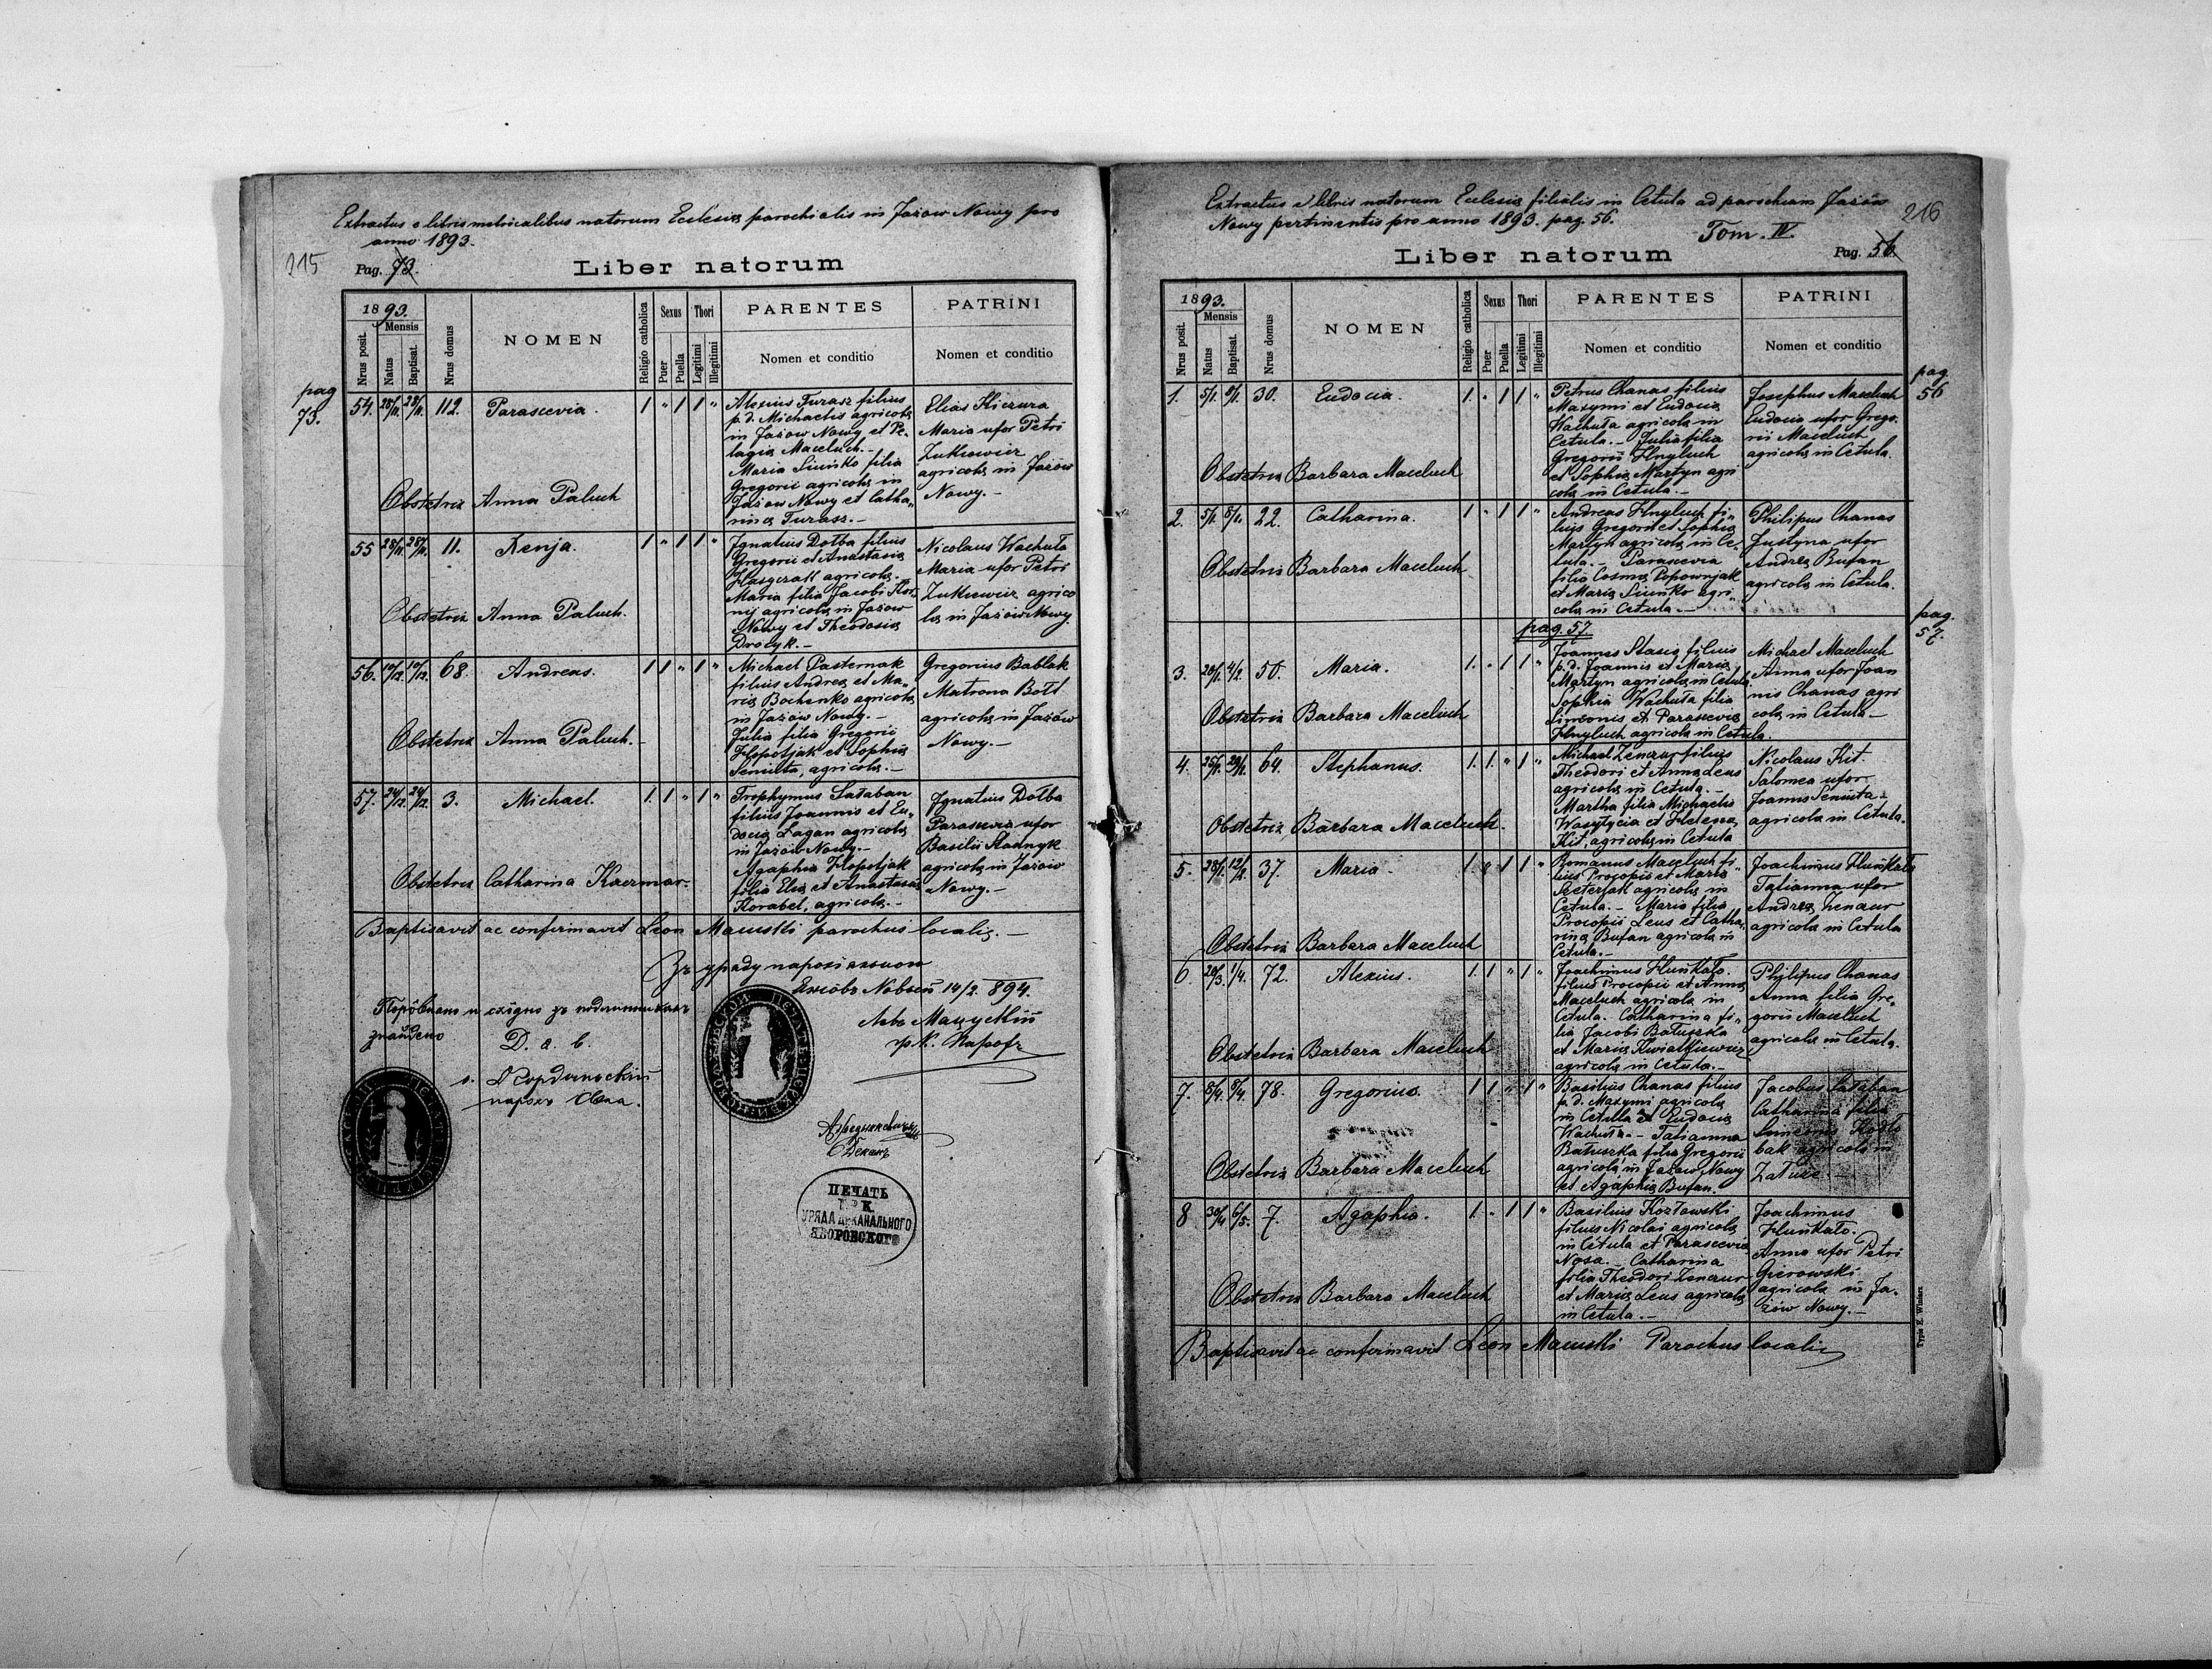 Extractus e libris metricalibus natorum Ecclesiæ parochialis in Jażow Nowy pro
anno 1893.
215
Pag. 73.
Liber natorum
1893.
Nrus posit.
Mensis
Natus
Baptisat.
Nrus domus
NOMEN
Religio catholica
Sexus
Puer
Puella
Thori
Legitimi
Illegitimi
PARENTES
Nomen et conditio
PATRINI
Nomen et conditio
pag
73.
54. 28/11. 28/11. 112. Parascevia. 1 " 1 1 "
Alexius Furasz filius
p. d. Michaelis agricola
in Jażow Nowy et Pe-
lagia Maceluch.-
Maria Siuńko filia
Gregorii agricolæ in
Jażow Nowy et Catha-
rina Furasz.-
Elias Kiczura
Maria uxor Petri
Zukiewicz
agricolæ in Jażow
Nowy.-
Obstetrix Anna Paluch
55 28/11. 28/11. 11. Xenja. 1 " 1 1 "
Ignatius Dołba filius
Gregorii et Anastasiæ
agricola.-
Maria filia Jacobi Kor-
nij agricolæ in Jażow
Nowy et Theodosiæ
Procyk.-
Nicolaus Wachuła
Maria uxor Petri
Zukiewicz agrico
læ in Jażów Nowy.
Obstetrix Anna Paluch.
56. 10/12. 10/12. 68. Andreas. 1 1 " 1 "
Michael Pasternak
filius Andreæ et Ma-
riæ Bochenko agricola
in Jażów Nowy.-
Julia filia Gregorii
Hopotjak et Sophiæ
Seniuta, agricola.-
Gregorius Bablak
Matrona Bott
agricolæ in Jażów
Nowy.-
Obstetrix Anna Paluch.-
57. 24/12. 24/12. 3. Michael. 1. 1 " 1 "
Trophymus Sataban
filius Joannis et Eu-
dociæ Łagan agricola
in Jażów Nowy.-
Agaphia Hopotjak
filia Eliæ et Anastasiæ
Korabel, agricola.-
Ignatius Dołba
Parascevia uxor
Basilii Stadnyk
agricolæ in Jażow
Nowy.-
Obstetrix Catharina Kaczmar.
Baptisavit ac confirmavit Leon Macuski parochus localis.-
Зъ уряду парохіяльного
Яжôвъ Новый 14/2. 894.
Левъ Мацускій
гр. к. Парохъ
Порôвнано и схôдно зъ подлинникомъ
знайдено
Д. а. в.
Деканъ
ПЕЧАТЬ
Г. К.
УРЯДА ДЕКАНАЛЬНОГО
ЯВОРÔВСКОГО
Extractus e libris natorum Ecclesiæ filialis in Cetula ad parochiam Jażów
Nowy pertinentis pro anno 1893. pag. 56.
216
Tom. IV.
Liber natorum
Pag. 56.
1893.
Nrus posit.
Mensis
Natus
Baptisat.
Nrus domus
NOMEN
Religio catholica
Sexus
Puer
Puella
Thori
Legitimi
Illegitimi
PARENTES
Nomen et conditio
PATRINI
Nomen et conditio
pag
56
1. 5/1. 8/1. 30. Eudocia. 1. " 1 1 "
Petrus Chanas filius
Maxymi et Eudociæ
Wachuła agricola in
Cetula.- Julia filia
Gregorii Hnyluch
et Sophiæ Martyn agri
colæ in Cetula.-
Josephus Maceluch
Eudocia uxor Grego-
rii Maceluch
agricolæ in Cetula.
Obstetrix Barbara Maceluch
2. 5/1. 8/1. 22. Catharina. 1 " 1 1 "
Andreas Hnyluch fi-
lius Gregorii et Sophiæ
Martyn agricola in Ce-
tula.- Parascevia
filia Cosmæ Popownjak
et Mariæ Siuńko agri-
colæ in Cetula.-
Philipus Chanas
Justyna uxor
Andreæ Bufan
agricolæ in Cetula.
Obstetrix Barbara Maceluch
pag. 57
pag.
57.
3. 20/1. 4/2. 50. Maria. 1. " 1 1 "
Joannes Stasiv filius
p. d. Joannis et Mariæ
Martyn agricola in Cetula
Sophia Wachuła filia
Simeonis et Parasceviæ
Hnyluch agricolæ in Cetula.
Michael Maceluch
Anna uxor Joan
nis Chanas agri
colæ in Cetula-
Obstetrix Barbara Maceluch
4. 25/1. 29/1. 64. Stephanus. 1. 1. " 1 "
Michael Zenczur filius
Theodori et Annæ Leus
agricola in Cetula.-
Martha filia Michaelis
Wasylycia et Helenæ
Kit, agricolæ in Cetula
Nicolaus Kit.
Salomea uxor
Joannis Seniuta-
agricola in Cetula.
Obstetrix Barbara Maceluch.
5. 28/1. 12/2. 37. Maria. 1. " 1 1 "
Romanus Maceluch fi-
lius Procopii et Mariæ
agricola in
Cetula.- Maria filia
Procopii Leus et Catha-
rinæ Bufan agricola in
Cetula.-
Joachimus Huńkało
Tatianna uxor
Andreæ Zenczur
agricolæ in Cetula
Obstetrix Barbara Maceluch
6. 20/3. 1/4. 72. Alexius. 1. 1 " 1 "
Joachimus Huńkało.
filius Procopii et Annæ
Maceluch agricola in
Cetula. Catharina fi-
lia Jacobi Batuszka
et Mariæ Kwiatkiewicz
agricola in Cetula.-
Philipus Chanas
Anna filia Gre-
gorii Maceluch
agricolæ in Cetula.
Obstetrix Barbara Maceluch
7. 8/4. 8/4. 78. Gregorius. 1 1 " 1 "
Basilius Chanas filius
p. d. Maxymi agricola
in Cetula et Eudociæ
Wachuła.- Tatianna
Batuszka filia Gregorii
agricolæ in Jażów Nowy
et Agaphiæ Bufan.
Jacobus Sataban
Catharina filia
Simeonis
agricolæ in
Załuże.-
Obstetrix Barbara Maceluch
8 30/4 6/5. 7. Agaphia. 1. " 1 1 "
Basilius Kozłowski
filius Nicolai agricola
in Cetula et Parasceviæ
Nosa. Catharina
filia Theodori Zenczur
et Mariæ Leus agricolæ
in Cetula.-
Joachimus
Huńkało.
Anna uxor Petri
Gierowski
agricola in Ja-
żów Nowy.-
Obstetrix Barbara Maceluch
Baptisavit ac confirmavit Leon Macuski Parochus localis
Typis E. Winiarz